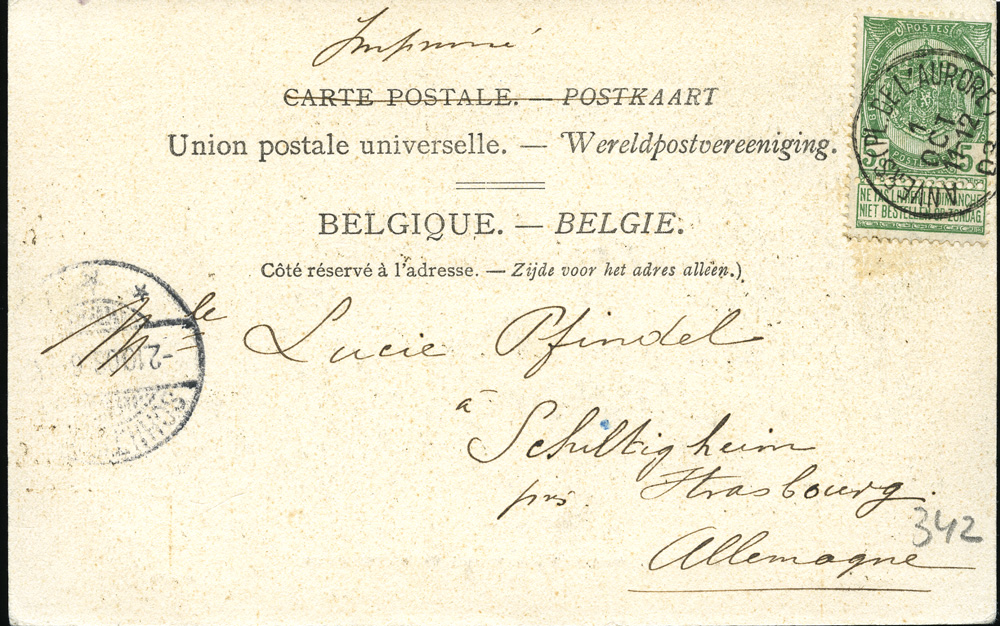 Imprimé
CARTE POSTALE. — POSTKAART
Union postale universelle. — Wereldpostvereeniging.
BELGIQUE. — BELGIE.
Côté réservé à l'adresse. — Zijde voor het adres alleen.)
POSTES
5 5
POSTERIJEN
NE PAS LIVRER LE DIMANCHE
NIET BESTELLEN OP ZONDAG
ANVERS (PL. DE L'AURORE)
OCT
12
-2.10.
Mlle Lucie Pfindel
à
Schiltigheim
près Strasbourg.
Allemagne
342